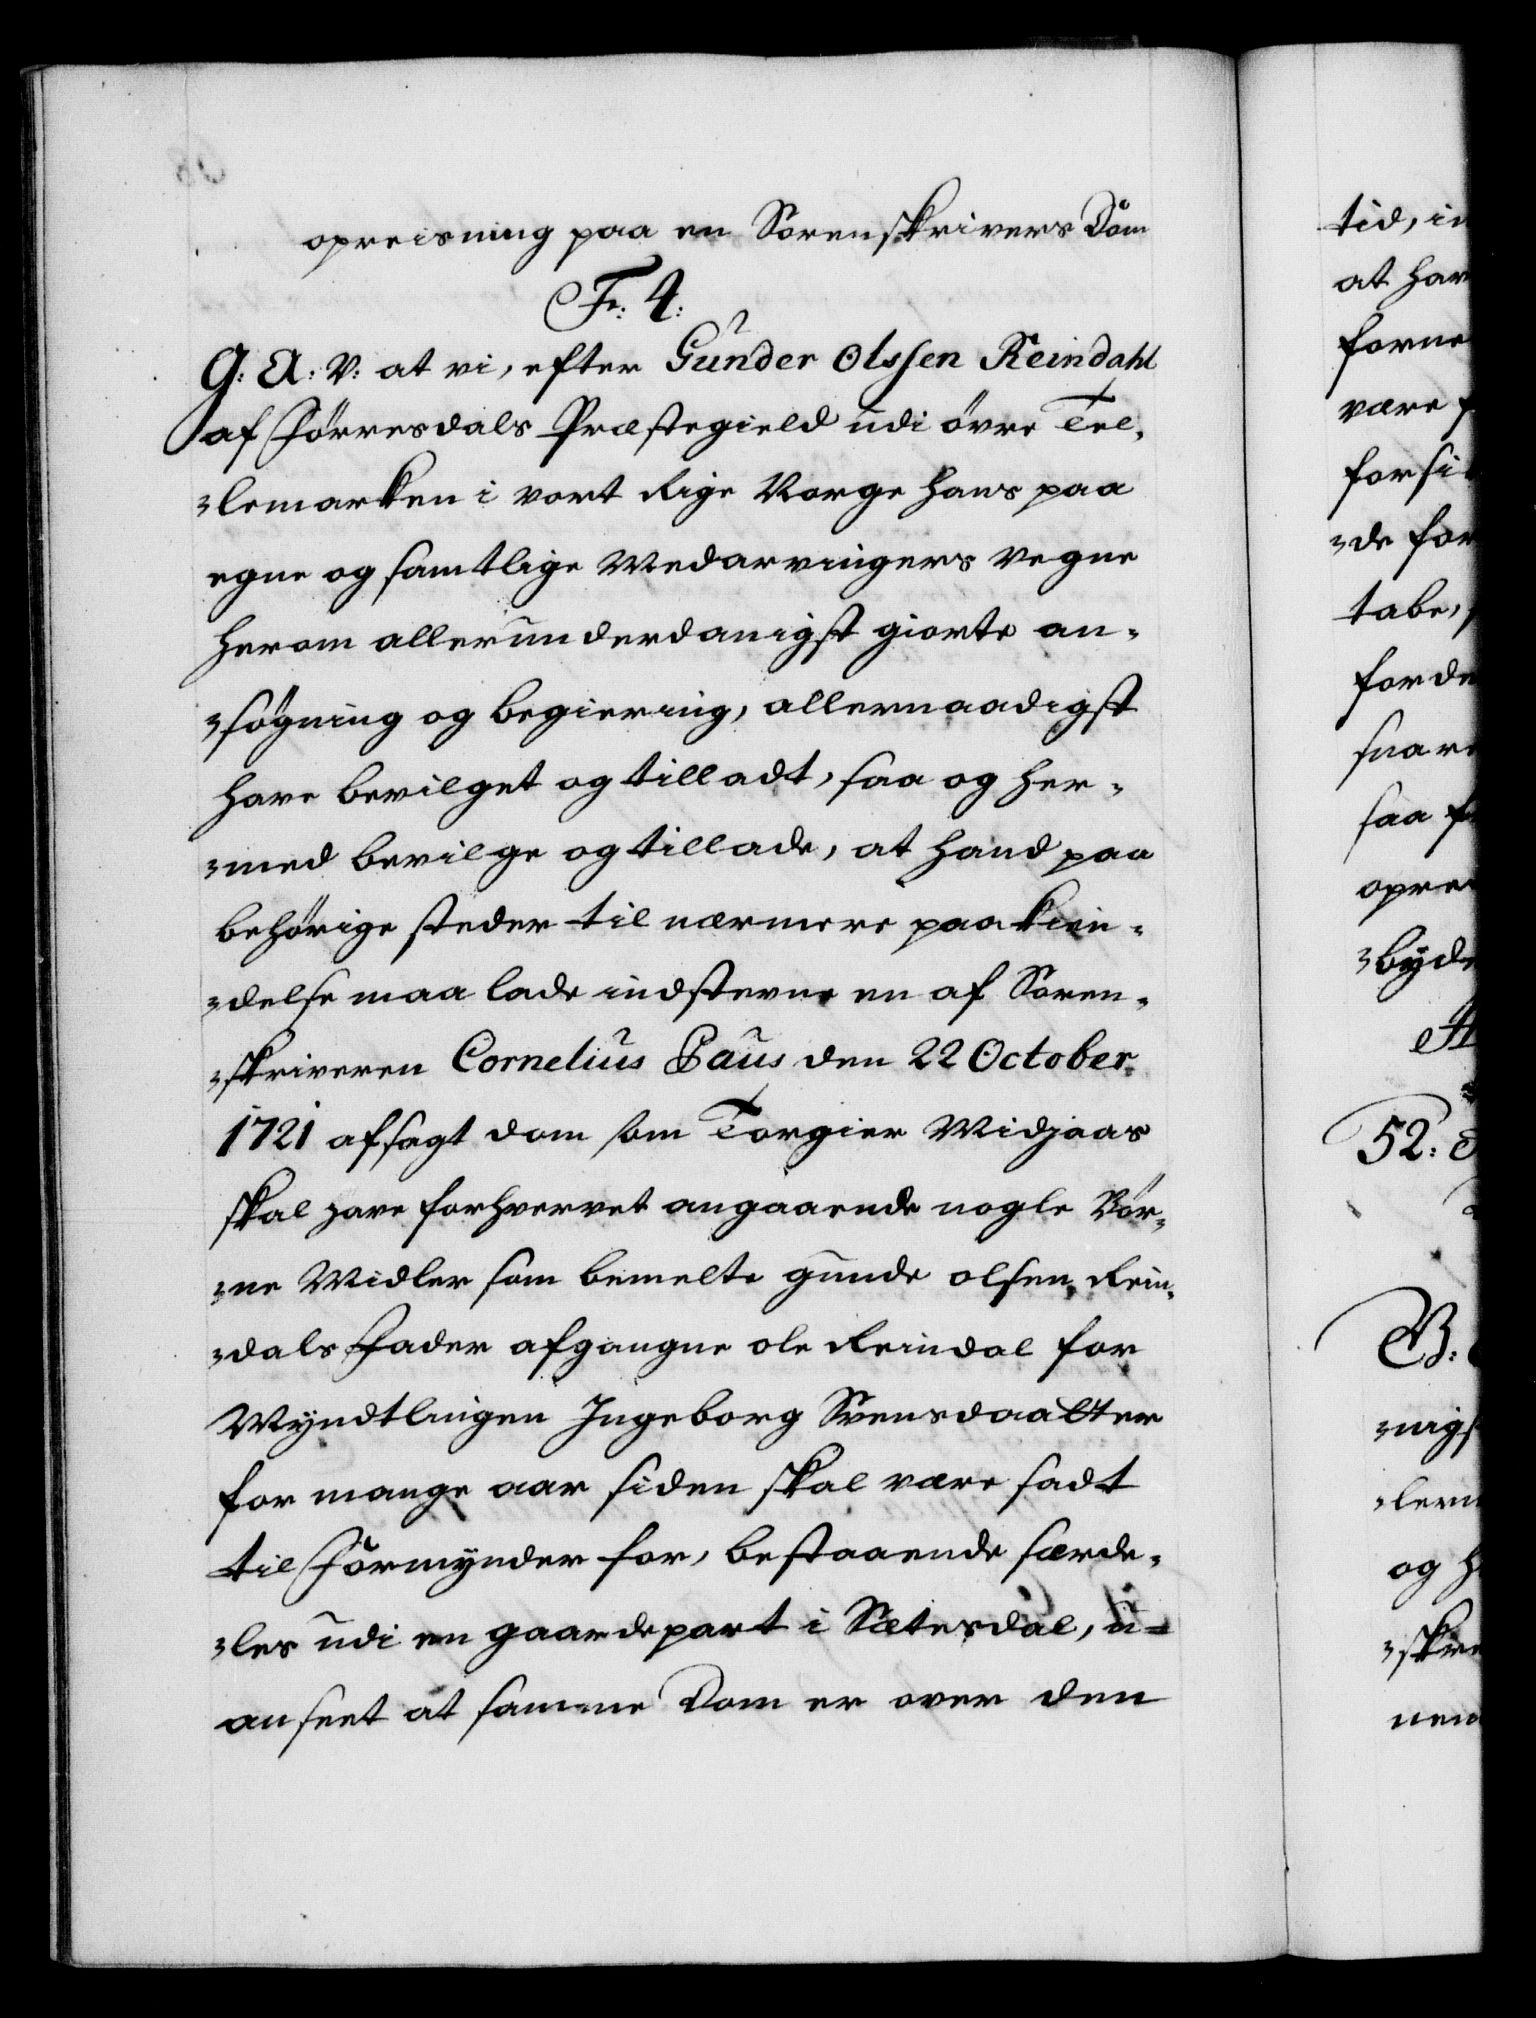 opreisning paa en Sorenskrivers Dom
Fr: 4:
G: A: V: at vi, efter Gunder Olssen Reindahl
af Hörresdals Præstegield udi övre Tel-
lemarken i vort Rige Norge hans paa
egne og samtlige Medarvingers vegne
herom allerunderdanigst giorte an-
søgning og begiering, allernaadigst
have bevilget og tilladt, saa og her-
med bevilge og tillade, at hand paa
behørige steder til nærmere paakien-
delse maa lade indstevne en af Soren-
skriveren Cornelius Paus den 22 October
1721 afsagt dom som Torgier Midjaas
skal have forhvervet angaaende nogle Bör-
ne Midler som bemelte Gunde Olsen Rein-
dals Fader afgangne Ole Reindal for
Myndtlingen Ingeborg Svensdaatter
for mange aar siden skal være sadt
til Formynder for, bestaaende særde-
les udi en gaardepart i Sætersdal, u-
anseet at samme Dom er over den
tid, in
at han
forne
være
forsi
de for
tabe,
forde
snare
saa
opre
byde
52:
B:
nigs
lern
og h
skre
nem